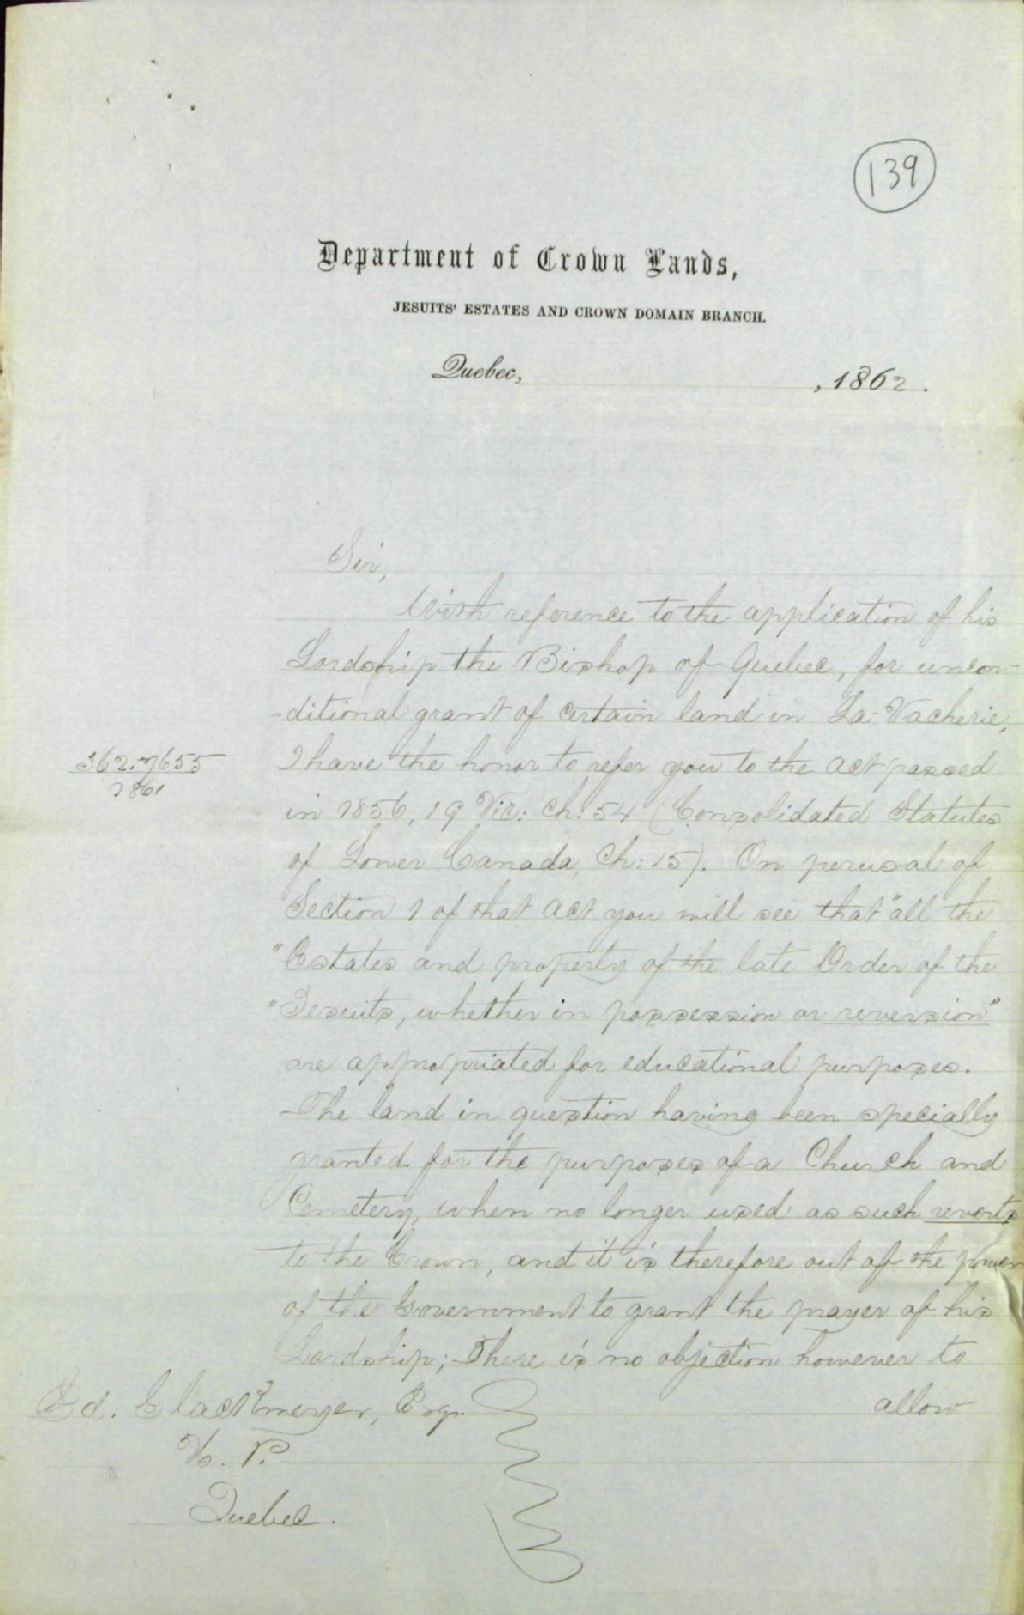 139
Department of Crown Lands,
JESUITS' ESTATES AND CROWN DOMAIN BRANCH.
Quebec, , 1862.
Sir,
With reference to the application of his
Lordship the Bishop of Quebec, for uncon-
-ditional grant of certain land in La-Vacherie,
I have the honor to refer you to the act passed
in 1856, 19 Vic: ch: 54 (Consolidated Statutes
of Lower Canada, Ch: 15). On perusal of
Section 1 of that act you will see that "all the
"Estates and property of the late Order of the
"Jesuits, whether in possession or reversion"
are appropriated for educational purposes.
The land in question having been specially
granted for the purposes of a Church and
Cemetery, when no longer used as such reverts
to the Crown, and it is therefore out of the power
of the Government to grant the prayer of his
Lordship; There is no objection however to
allow
7655
1861
Ed. Glackmeyer, Esq.
N. P.
Quebec.